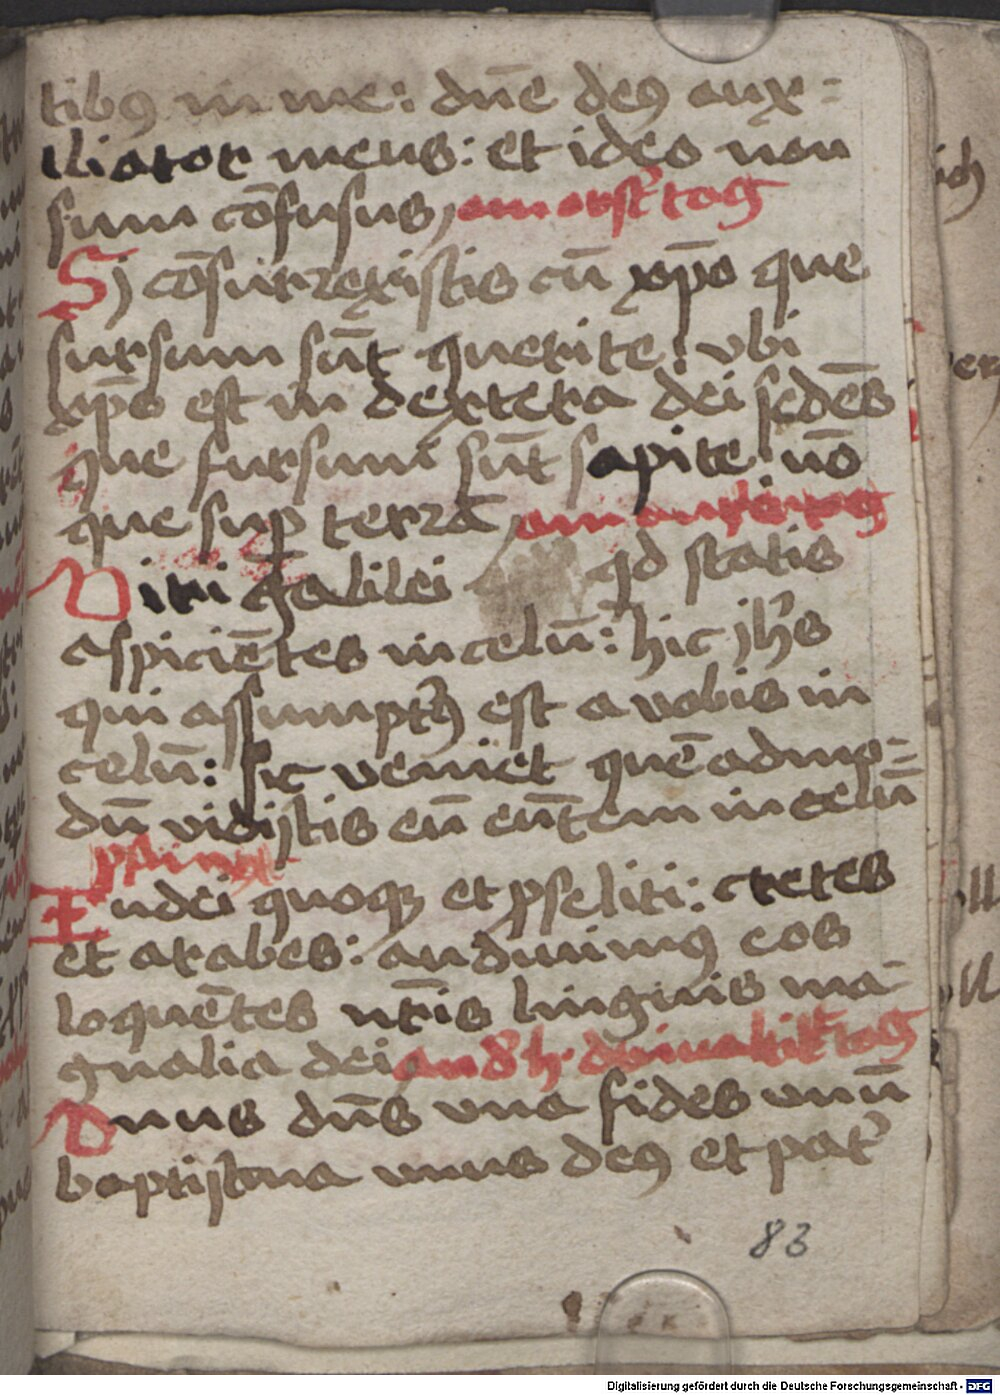 tibꝯ in me: dn̄e deꝯ aux=
iliator meus: et ideo non
sum cōfusus am osſt̓ tag
Si cōsurrexistis cū xp̄o que
sursum sūt querite: vbi
xp̄o est in dextera dei sedēs
que sursum sūt sapite nō
que suꝑ terrā am
Viri galilei qd statis
aspiciētes in celū: hic jh̓s
qui assumptꝯ est a vobis in
celū: sic veniet quēadmo=
dū vidistis eū eūtem in celū
pfing
Iudei quoqꝫ et ꝓseliti: cretes
et arabes: audiuimꝯ eos
loquētes nr̄is linguis ma-
gnalia dei an d̓ h. driualtik̓ tag
Vnus dn̄s vna fides vnū
baptisma vnus deꝯ et pat̓
83
Digitalisierung gefördert durch die Deutsche Forschungsgemeinschaft - DFG